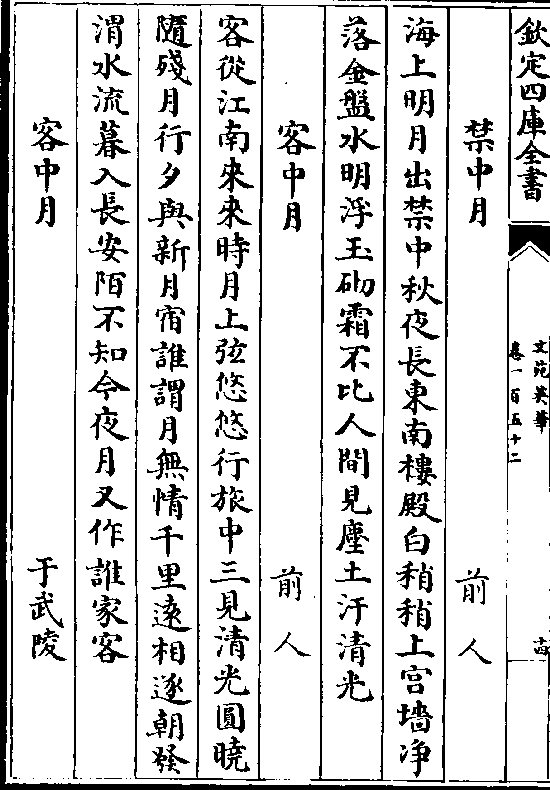 欽定四庫全書
文苑英華
卷一百五十二
十四
禁中月 前人
海上明月出禁中秋夜長東南樓殿白稍稍上宫墻净
落金盤水明浮玉砌霜不比人間見塵土汙清光
客中月 前人
客從江南來來時月上弦悠悠行旅中三見清光圓曉
隨殘月行夕與新月宿誰謂月無情千里逺相逐朝發
渭水流暮入長安陌不知今夜月又作誰家客
客中月 于武陵